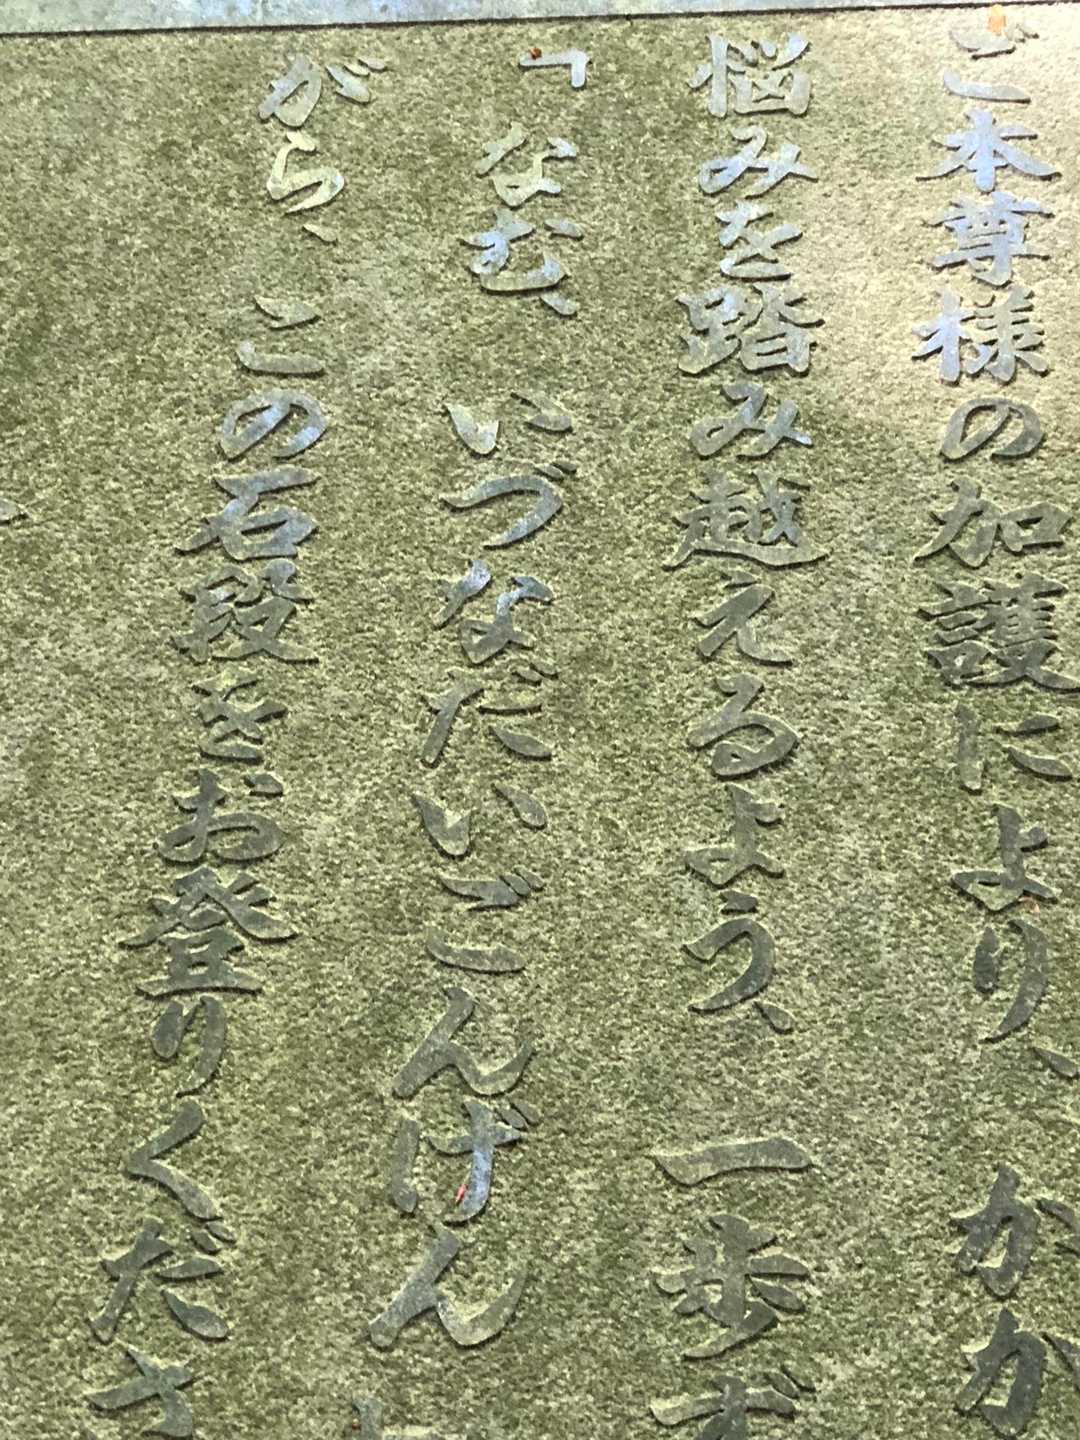 ご本尊様の加護により、かか
悩みを踏み越えるよう、一歩ず
「なむ、いづなだいごんげん
がら、この石段をお登りくださ